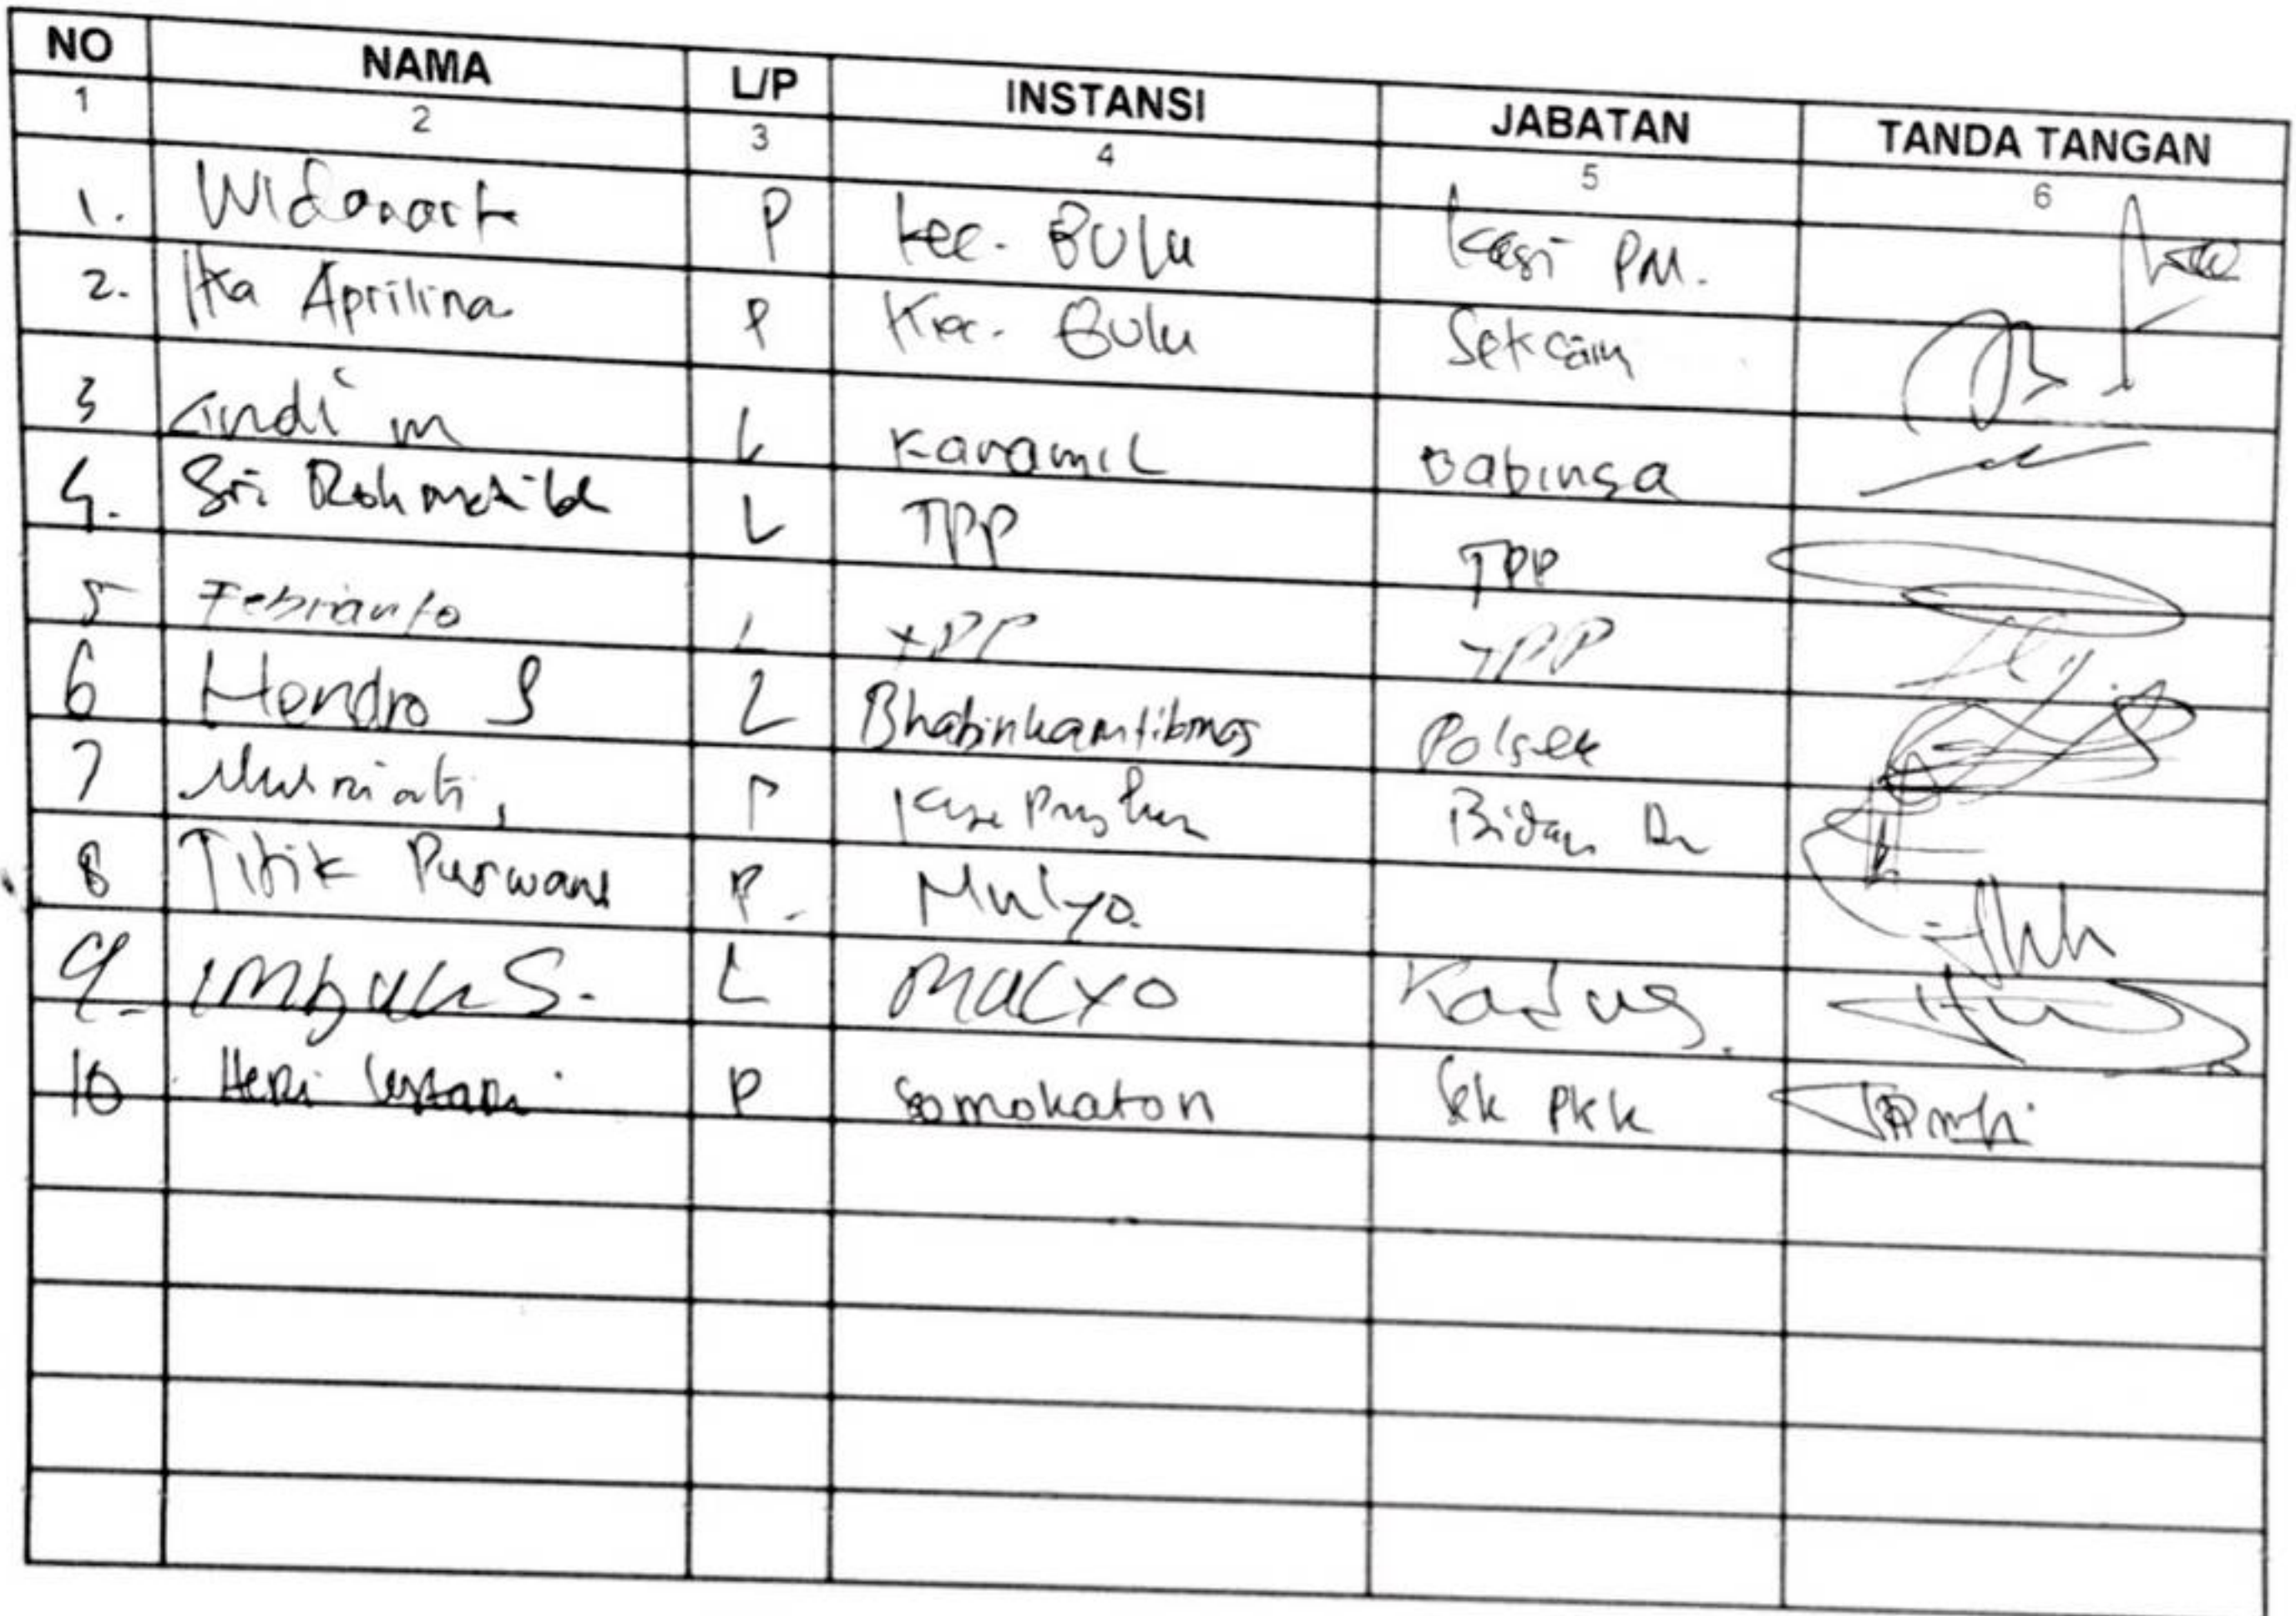 NO NAMA L/P INSTANSI JABATAN TANDA TANGAN
1 2 3 4 5 6
1. P Kec. Bulu Kasi PM.
2. Ika Aprilina P Kec. Bulu Sekcam
3 Andi m L Karamil Babinsa
4. Sri L TPP TPP
5 Febrianto L TPP TPP
6 Hendro S L Bhabinkamtibmas Polsek
7 Murniati, P Bidan
8 Titik Purwani P. Mulyo.
9. imbuh S. L MULYO Kadus.
10 Heni Lestari P Somokaton Sek PKK